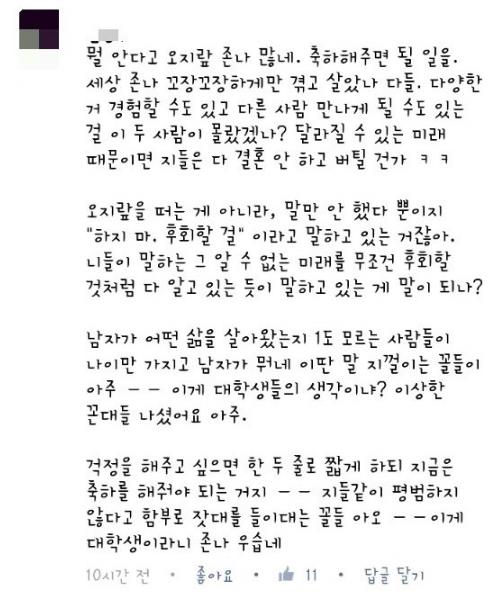 뭘 안다고 오지랖 존나 많네. 축하해주면 될 일을.
세상 존나 꼬장꼬장하게만 겪고 살았나 다들. 다양한
거 경험할 수도 있고 다른 사람 만나게 될 수도 있는
걸 이 두 사람이 몰랐겠나? 달라질 수 있는 미래
때문이면 지들은 다 결혼 안 하고 버틸 건가 ㅋㅋ
오지랖을 떠는 게 아니라, 말만 안 했다 뿐이지
"하지 마. 후회할 걸" 이라고 말하고 있는 거잖아.
니들이 말하는 그 알 수 없는 미래를 무조건 후회할
것처럼 다 알고 있는 듯이 말하고 있는 게 말이 되나?
남자가 어떤 삶을 살아왔는지 1도 모르는 사람들이
나이만 가지고 남자가 뭐네 이딴 말 지껄이는 꼴들이
아주 ㅡㅡ 이게 대학생들의 생각이냐? 이상한
꼰대들 나셨어요 아주.
걱정을 해주고 싶으면 한 두 줄로 짧게 하되 지금은
축하를 해줘야 되는 거지 ㅡㅡ 지들같이 평범하지
않다고 함부로 잣대를 들이대는 꼴들 아오 ㅡㅡ이게
대학생이라니 존나 우습네
10시간 전 • 좋아요 • 11 • 답글 달기